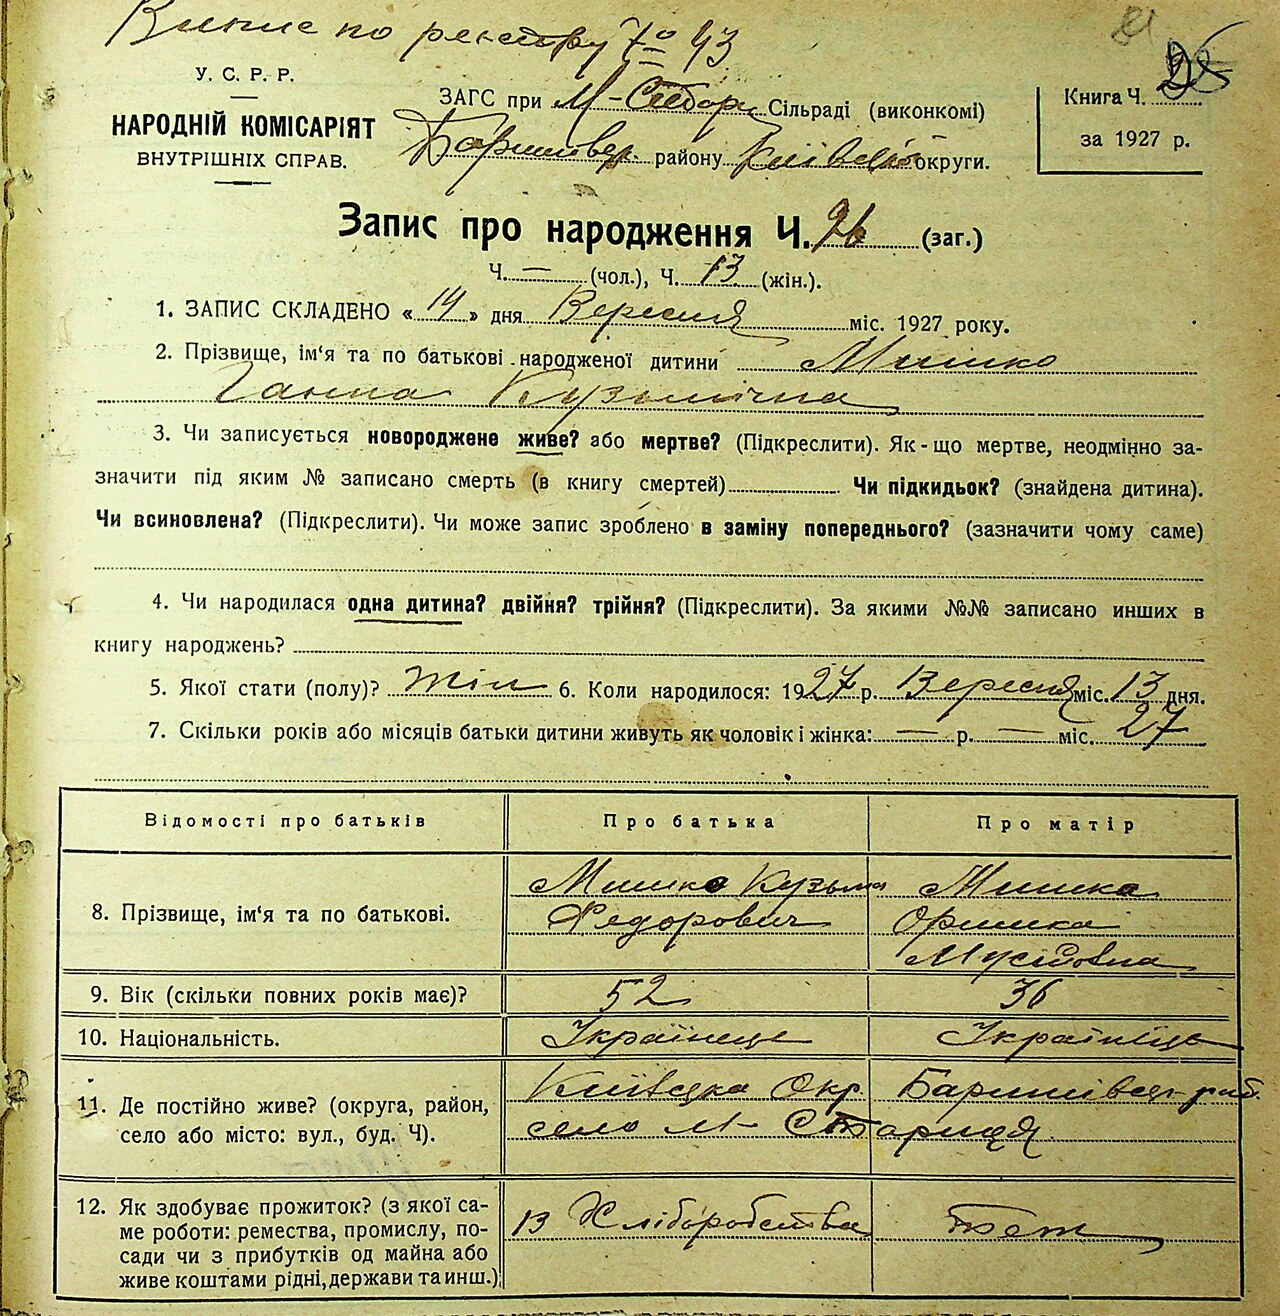 Випис по реєстру 7º 43
У. С. Р. Р.
НАРОДНІЙ КОМІСАРІЯТ
ВНУТРІШНІХ СПРАВ.
ЗАГС при М- Сільраді (виконкомі)
Баришівск. району Київської округи.
Книга Ч.
за 1927 р.
Запис про народження Ч. 26 (заг.)
Ч. — (чол.), Ч. 13 (жін.).
1. ЗАПИС СКЛАДЕНО « 14 » дня Вересня міс. 1927 року.
2. Прізвище, ім'я та по батькові народженої дитини Мишко
Ганна Кузьмічна
3. Чи записується новороджене живе? або мертве? (Підкреслити). Як-що мертве, неодмінно за-
значити під яким № записано смерть (в книгу смертей) Чи підкидьок? (знайдена дитина).
Чи всиновлена? (Підкреслити). Чи може запис зроблено в заміну попереднього? (зазначити чому саме)
4. Чи народилася одна дитина? двійня? трійня? (Підкреслити). За якими №№ записано инших в
книгу народжень?
5. Якої стати (полу)? жін 6. Коли народилося: 1927 р. Вересня міс. 13 дня.
7. Скільки років або місяців батьки дитини живуть як чоловік і жінка: — р. — міс. 27
Відомості про батьків Про батька Про матір
8. Прізвище, ім'я та по батькові. Мишко Кузьма Федорович Мишка Оришка
9. Вік (скільки повних років має)? 52 36
10. Національність. Українець Українка
11. Де постійно живе? (округа, район, Київцка Окр. Баришівец. рай.
село або місто: вул., буд. Ч). село М- Стариця
12. Як здобуває прожиток? (з якої са- В Хліборобства теж
ме роботи: ремества, промислу, по-
сади чи з прибутків од майна або
живе коштами рідні, держави та инш.)